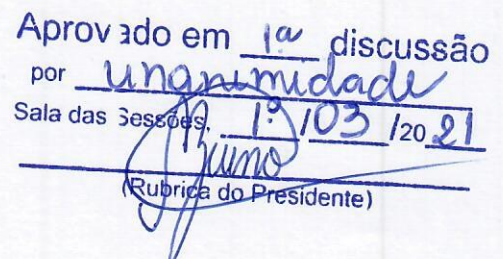 Aprovado em 1ª discussão
por unanimidade
Sala das Sessões, 1º/03/2021
(Rubrica do Presidente)